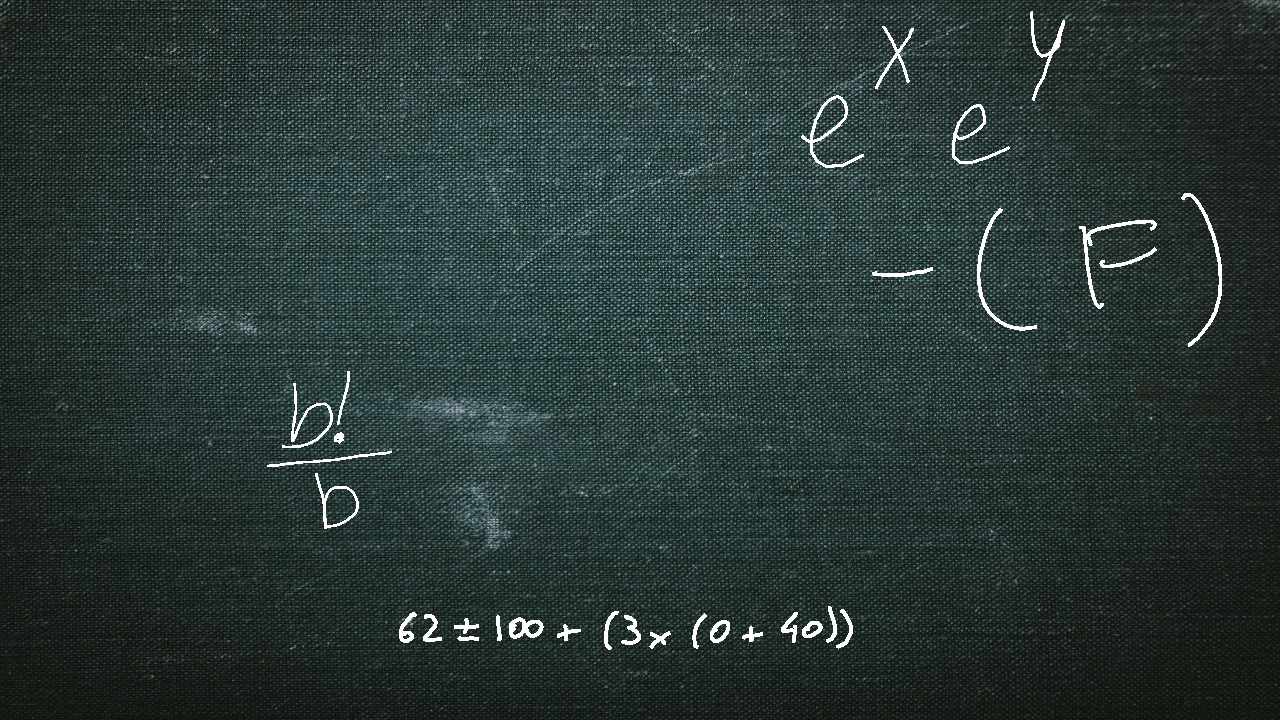 e^x e^y
-(F)
b!/b
62 ± 100 + (3 × (0 + 40))